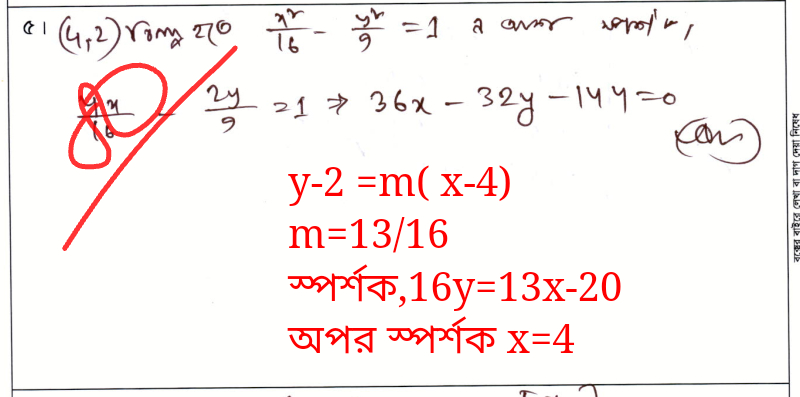 ৫। (4,2) বিন্দু হতে x²/16 - y²/9 = 1 এ অঙ্কিত স্পর্শক,
4x/16 - 2y/9 = 1 ⇒ 36x - 32y - 144 = 0
(Ans)
y-2 =m( x-4)
m=13/16
স্পর্শক,16y=13x-20
অপর স্পর্শক x=4
বক্সের বাইরে লেখা বা দাগ দেয়া নিষেধ